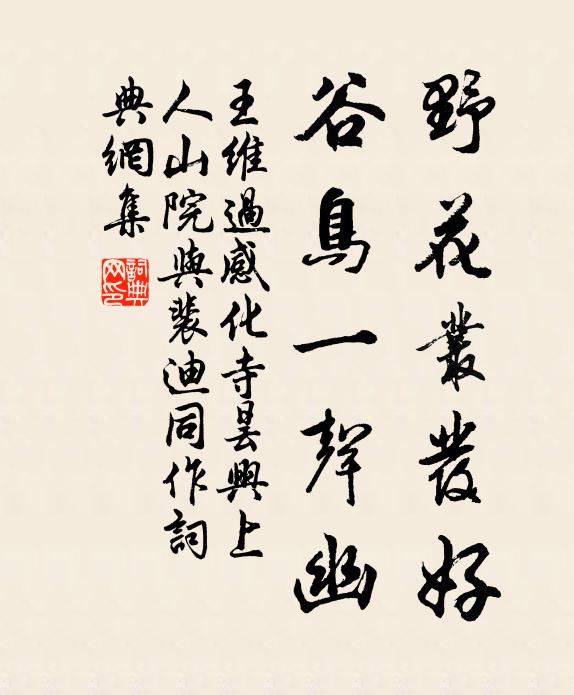 野花叢發好
谷鳥一聲幽
王維過感化寺曇興上
人山院與裴迪同作詞
典網集
詞典網印